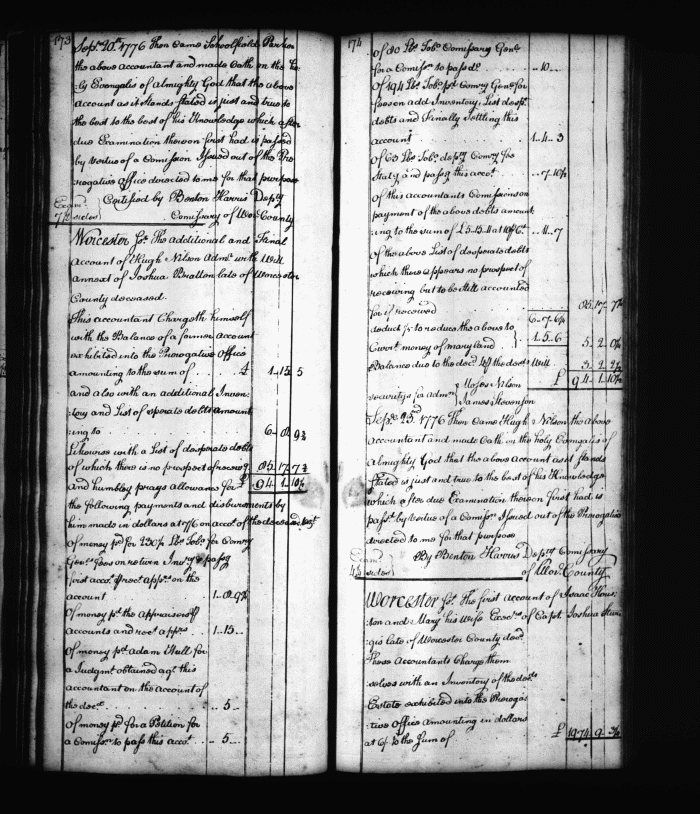 173
Sepr. 20th 1776 Then Came Schoolfield Parker
the above accountant and made Oath on the Ho:
:ly Evangelis of Almighty God that the above
Account as it Stands Stated is just and true to
the best to the best of his Knowledge which after
due Examination thereon first had is passed
by Vertue of a Comission Issued out of the Pre
rogative Office directed to me for that purpose
Certified by Benton Harris Depty
7½ sides Comissary of Wor. County
Worcester Ss. The Additional and Final
Account of Hugh Nilson Admr. with Will
annext of Joshua Bratten late of Worcester
County deceased.
This accountant Chargeth himself
with the Balance of a former account
exhibited into the Prerogative Office
amounting to the sum of £ 1..15 5
and also with an additional Inven:
:tory and List of sperate debts amount
:ing to 6..8 9¾
Likewise with a List of desperate debts
of which there is no prospect of recovg 85..17..7¾
And humbley prays allowance for £ 94..1..10½
the following payments and disbursments by
him made in dollars at 7/6 on accot. of the deceased
Of money pd. for 230½ lbs Tobo. for Comry
Genl. fees on return Invy & passg
first accot. & rect. apps. on the
account 1..8..9¾
Of money pd. the appraisers
accounts and rect. apps. 1..15..
Of money pd. Adam Hall for
a Judgmt. obtained agt. this
accountant on the Account of
the decd. .. 5 ..
Of money pd. for a Petition for
a Comissn. to pass this accot. .. 5 ..
174
Of 80 lbs Tobo. Comissary Genl.
for a Comissn. to pass do. .. 10 ..
Of 194 lbs Tobo. pd. Comry Genl. for
fees on add Inventory, List despt.
debts and Finally Settling this
account 1..4..3
Of 63 lbs Tobo. depty Comry for
Statg and passg this accot. .. 7..10½
Of this accountants Comission on
payment of the above debts amount
:ing to the sum of £5..15..11 at 10 .. 11..7
Of the above List of desperate debts
which there appears no prospect of
receiving but to be Still accounted
for if received 85..17..7¾
deduct to reduce the above to 6..7..6½
Currt. money of maryland 1..5..6 5..2..0½
Balance due to the decd. Will 3..2..2½
£ 94..1..10½
securitys for admr. Moses Nilson
James Stevenson
Sepr. 23d. 1776 Then Came Hugh Nilson the above
Accountant and made Oath on the holy Evangelis of
Almighty God that the above Account as it stands
Stated is just and true to the best of his Knowledge
which after due Examination thereon first had is
passt. by Vertue of a Comissn. Issued out of the Prerogative
directed to me for that purpose
By Benton Harris Depty Comissary
4½ sides of Wor. County
Worcester Ss. The first account of Isaac Hous:
:ton and Mary his Wife Execrs. of Capt. Joshua Stur:
:gis late of Worcester County decd.
These Accountants Charge them
selves with an Inventory of the decds.
Estate exhibited into the Preroga
tive Office Amounting in dollars
at 6/ to the sum of £ 1974..9..3½